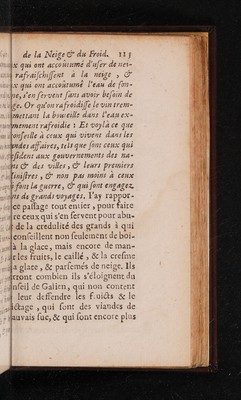 de la Neige & du Froid. 223
x qui ont accoûtumé d'user de nei-
rafraischissent à la neige, &
x qui ont accoûtumé l'eau de fon-
ne, s'en servent sans avoir besoin de
ge. Or qu'on rafroidisse le vin trem-
mettant la bouteille dans l'eau ex-
mement rafroidie : Et voylà ce que
nseille à ceux qui vivent dans les
ndes affaires, tels que sont ceux qui
sident aux gouvernements des na-
s & des villes, & leurs premiers
inistres, & non pas moins à ceux
font la guerre, & qui sont engagez
de grands voyages. I'ay rappor-
ce passage tout entier, pour faire
re ceux qui s'en servent pour abu-
de la credulité des grands à qui
conseillent non seulement de boi-
à la glace, mais encore de man-
les fruits, le caillé, & la cresme
a glace, & parsemés de neige. Ils
rront combien ils s'eloignent du
nseil de Galien, qui non content
leur deffendre les fruicts & le
ictage, qui sont des viandes de
auvais suc, & qui sont encore plus